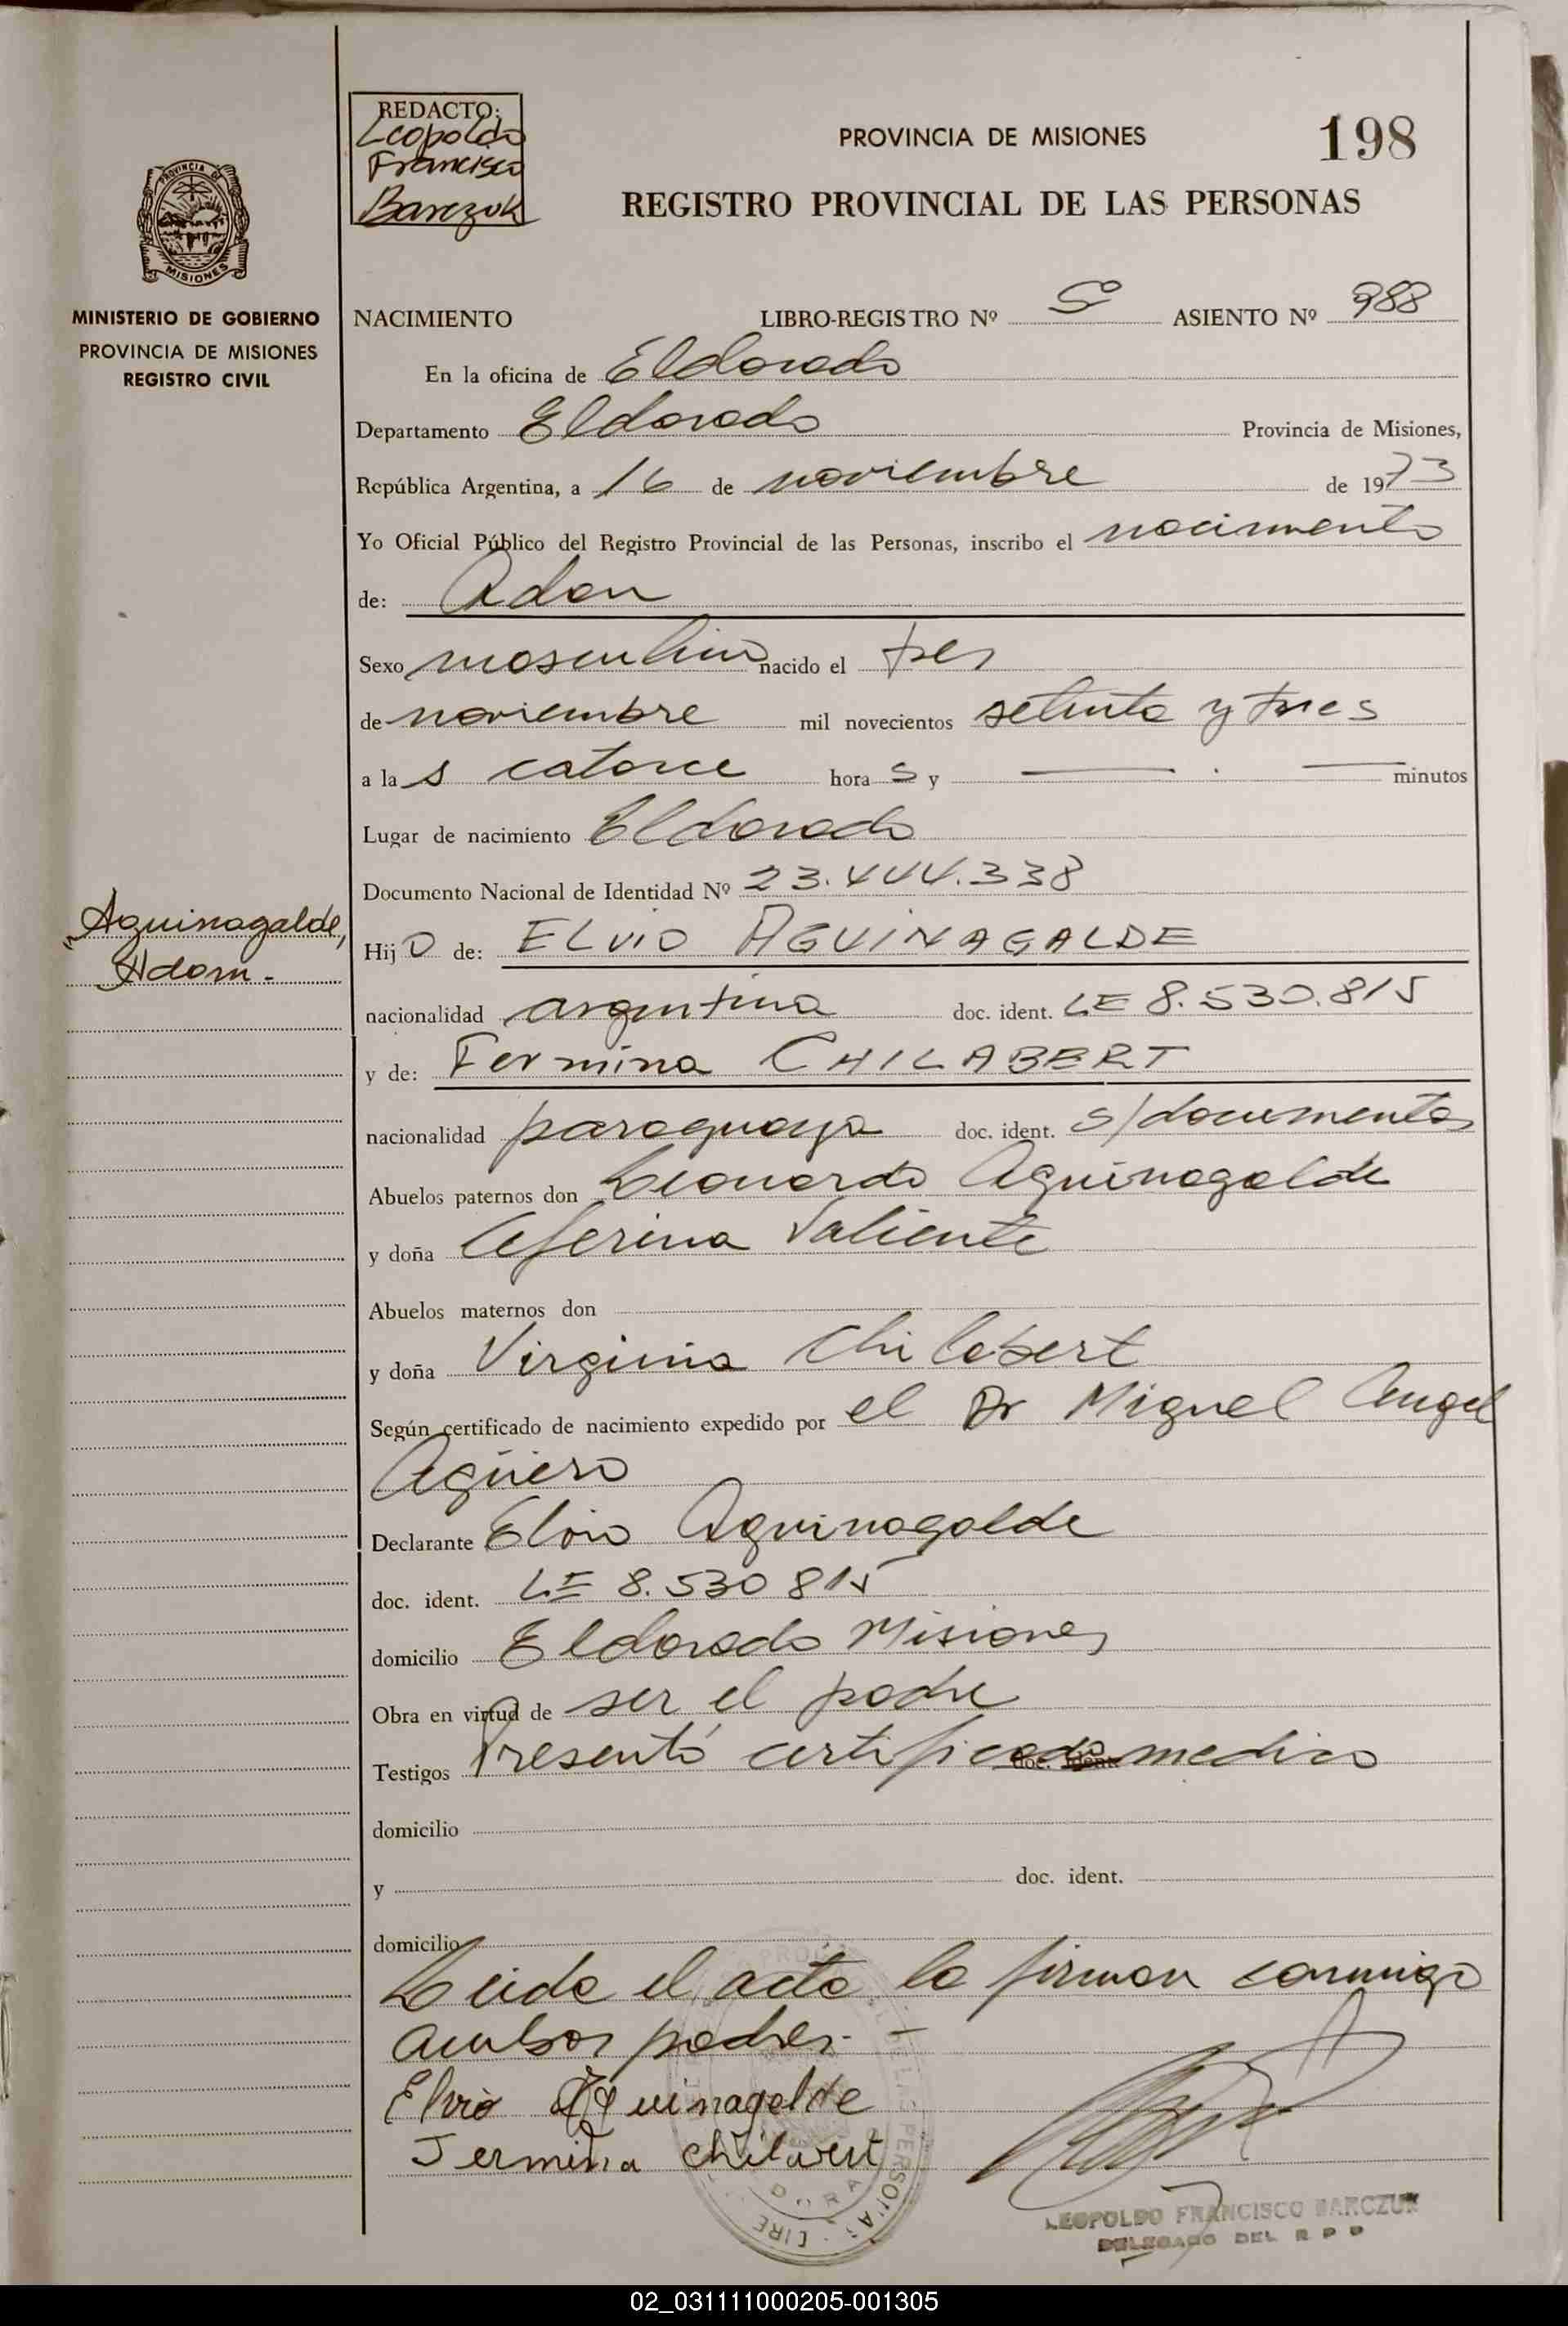 REDACTO:
Leopoldo
Francisco
Barczuk
PROVINCIA DE MISIONES
198
REGISTRO PROVINCIAL DE LAS PERSONAS
PROVINCIA DE
MISIONES
MINISTERIO DE GOBIERNO
PROVINCIA DE MISIONES
REGISTRO CIVIL
NACIMIENTO LIBRO-REGISTRO Nº 5º ASIENTO Nº 988
En la oficina de Eldorado
Departamento Eldorado Provincia de Misiones,
República Argentina, a 16 de noviembre de 1973
Yo Oficial Público del Registro Provincial de las Personas, inscribo el nacimiento
de: Adan
Sexo masculino nacido el tres
de noviembre mil novecientos setenta y tres
a las catorce horas y minutos
Lugar de nacimiento Eldorado
Documento Nacional de Identidad Nº 23.444.338
Aguinagalde,
Adam.-
Hijo de: ELVIO AGUINAGALDE
nacionalidad argentina doc. ident. LE 8.530.815
y de: Fermina CHILABERT
nacionalidad paraguaya doc. ident. s/documentos
Abuelos paternos don Leonardo Aguinagalde
y doña Ceferina Valiente
Abuelos maternos don
y doña Virginia Chilabert
Según certificado de nacimiento expedido por el Dr Miguel Angel
Agüero
Declarante Elvio Aguinagalde
doc. ident. LE 8.530 815
domicilio Eldorado Misiones
Obra en virtud de ser el padre
Testigos Presentó certificado medico
domicilio
y doc. ident.
domicilio
Leida el acta la firman conmigo
ambos padres.-
Elvio Aguinagalde
Jermina chilavert
LEOPOLDO FRANCISCO BARCZUK
DELEGADO DEL R P P
02_031111000205-001305